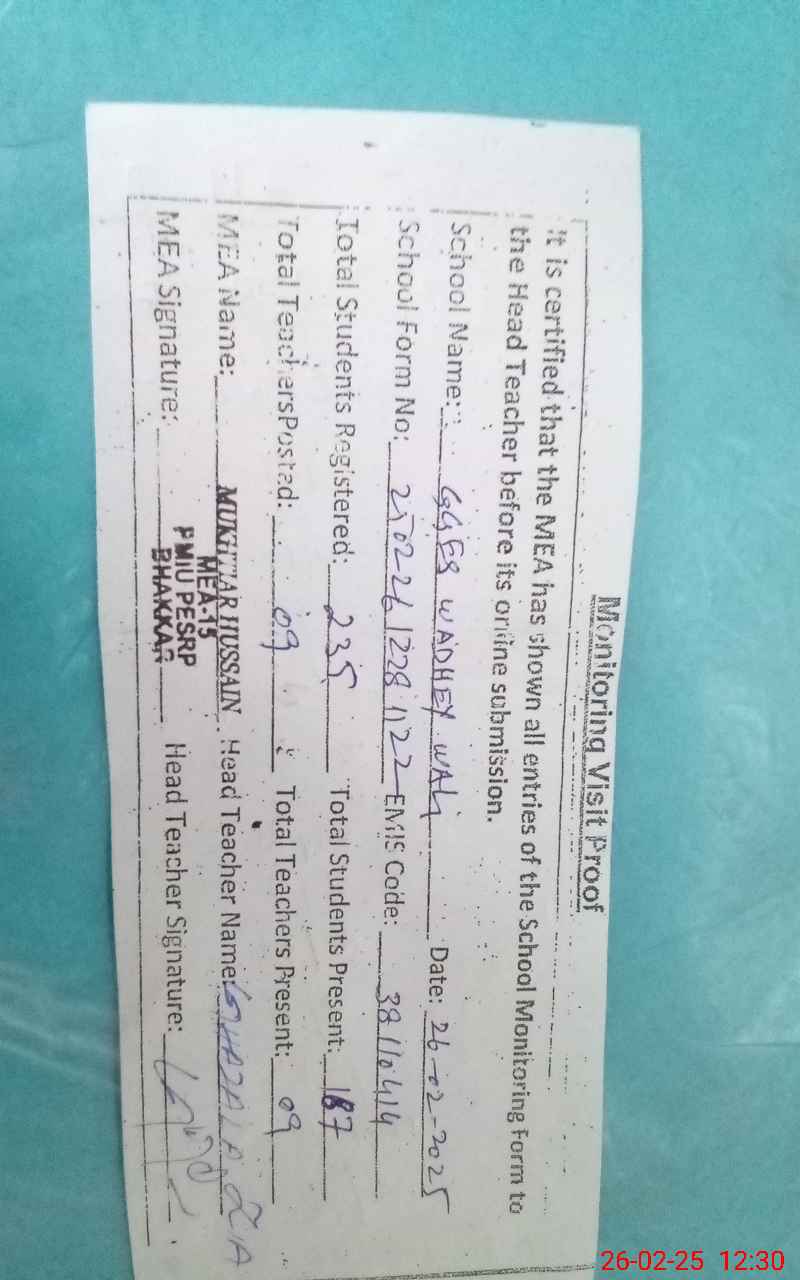 Monitoring Visit Proof
It is certified that the MEA has shown all entries of the School Monitoring Form to
the Head Teacher before its online submission.
School Name: GGES WADHEY WALI Date: 26-02-2025
School Form No: 25022612281122 EMIS Code: 38110414
Total Students Registered: 235 Total Students Present: 187
Total Teachers Posted: 09 Total Teachers Present: 09
MEA Name: MUKHTIAR HUSSAIN Head Teacher Name: GHAZALA ZIA
MEA Signature: Head Teacher Signature:
MEA-15
PMIU PESRP
BHAKKAR
26-02-25 12:30